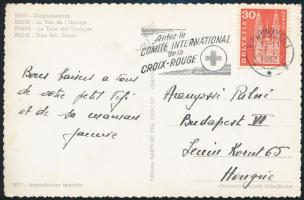 BERN - Zeitglockenturm
BERNE - La Tour de l'Horloge
BERNA - La Torre dell'Orologio
BERNE - Time Bell - Tower
Aidez le
COMITÉ INTERNATIONAL
de la
CROIX-ROUGE
30
HELVETIA
Bons baisers à tous
de votre petit
et de sa maman
Jeannie
Aranyossi Pálné
Budapest VI
Lenin Korut 65
Hongrie
Reproduction interdite